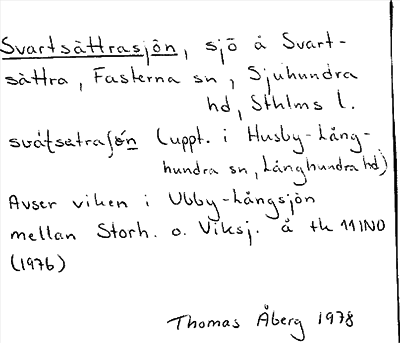 Svartsättrasjön, sjö å Svart-
sättra, Fasterna sn, Sjuhundra
hd, Sthlms l.
svátsetraſǿn (uppt. i Husby-Lång-
hundra sn, Långhundra hd)
Avser viken i Ubby-Långsjön
mellan Storh. o. Viksj. å tk 11INO
(1976)
Thomas Åberg 1978